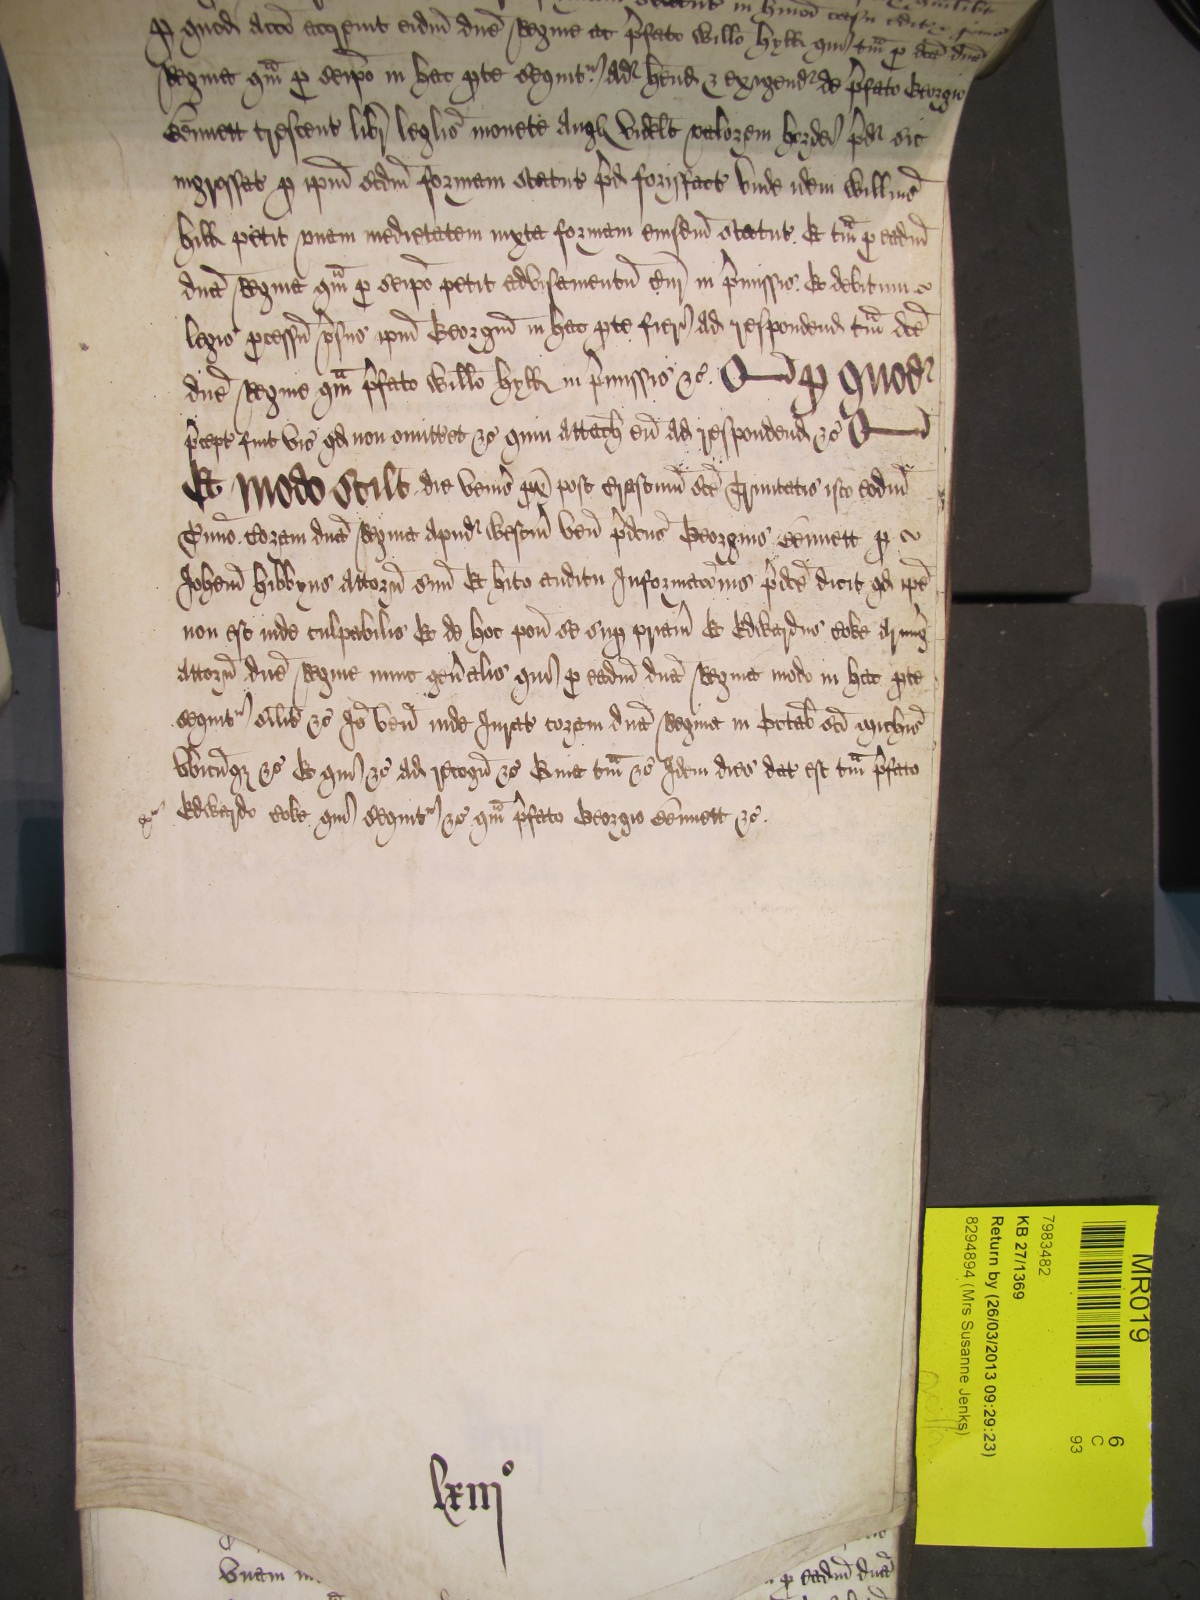 p quod accio accrevit eidm dne Regine ac pfato Willo Hyll qui tam p dca dna
Regina qam p seipo in hac pte sequit Ad hend & exigend de pfato Georgio
Bennett trescent libr leglis monete Angl videlt valorem hordei pd sic
ingrossat p ipm scdm formam statut pd forisfact unde idem Willms
Hill petit unam medietatem iuxta formam eiusdm statut. Et tam p eadm
dna Regina qam p seipo petit advisamentu Cur in pmissis. Et debitum
legis pcessu psus ipm Georgiu in hac pte fieri Ad respondend tam dce
dne Regine qam pfato Willo Hyll in pmissis &c. p quod
pcept fuit vic qd non omittet &c quin attach eu ad respondend &c
Et modo scilt die Venis px post Crastinu sce Trinitatis isto eodm
Tmio. Coram dna Regina apud Westm ven pdcus Georgius Bennett p
Johem Hibbyns attorn suu Et hito auditu Informacois pdce dicit qd ipe
non est inde culpabilis Et de hoc pon se sup priam Et Edwardus Coke Armig
Attorn dne Regine nunc genalis qui p eadm dna Regina modo in hac pte
sequit silit &c Io ven inde Jurat coram dna Regina in Octab sci Michis
ubicuq &c Et qui &c ad recogn &c Quia tam &c Idem dies dat est tam pfato
Edwardo Coke qui sequit &c qam pfato Georgio Bennett &c.
lxiij
Unam
p eadm dna
MR019
6
C
93
7983482
KB 27/1369
Return by (26/03/2013 09:29:23)
8294894 (Mrs Susanne Jenks)